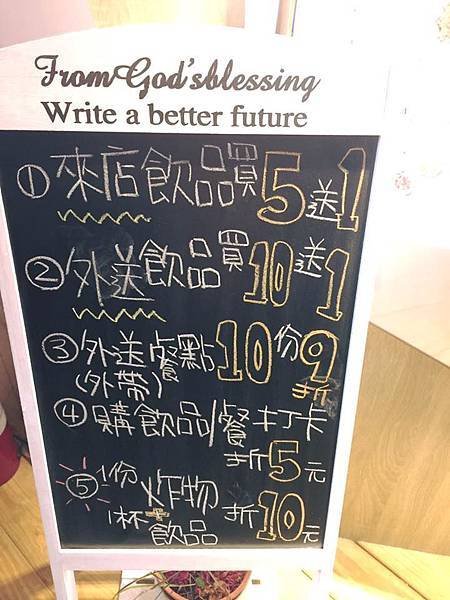 From God's blessing
Write a better future
①來店飲品買5送1
②外送飲品買10送1
③外送餐點10份9折
(外帶)
④購飲品/餐打卡
折5元
⑤1份炸物
1杯+飲品折10元